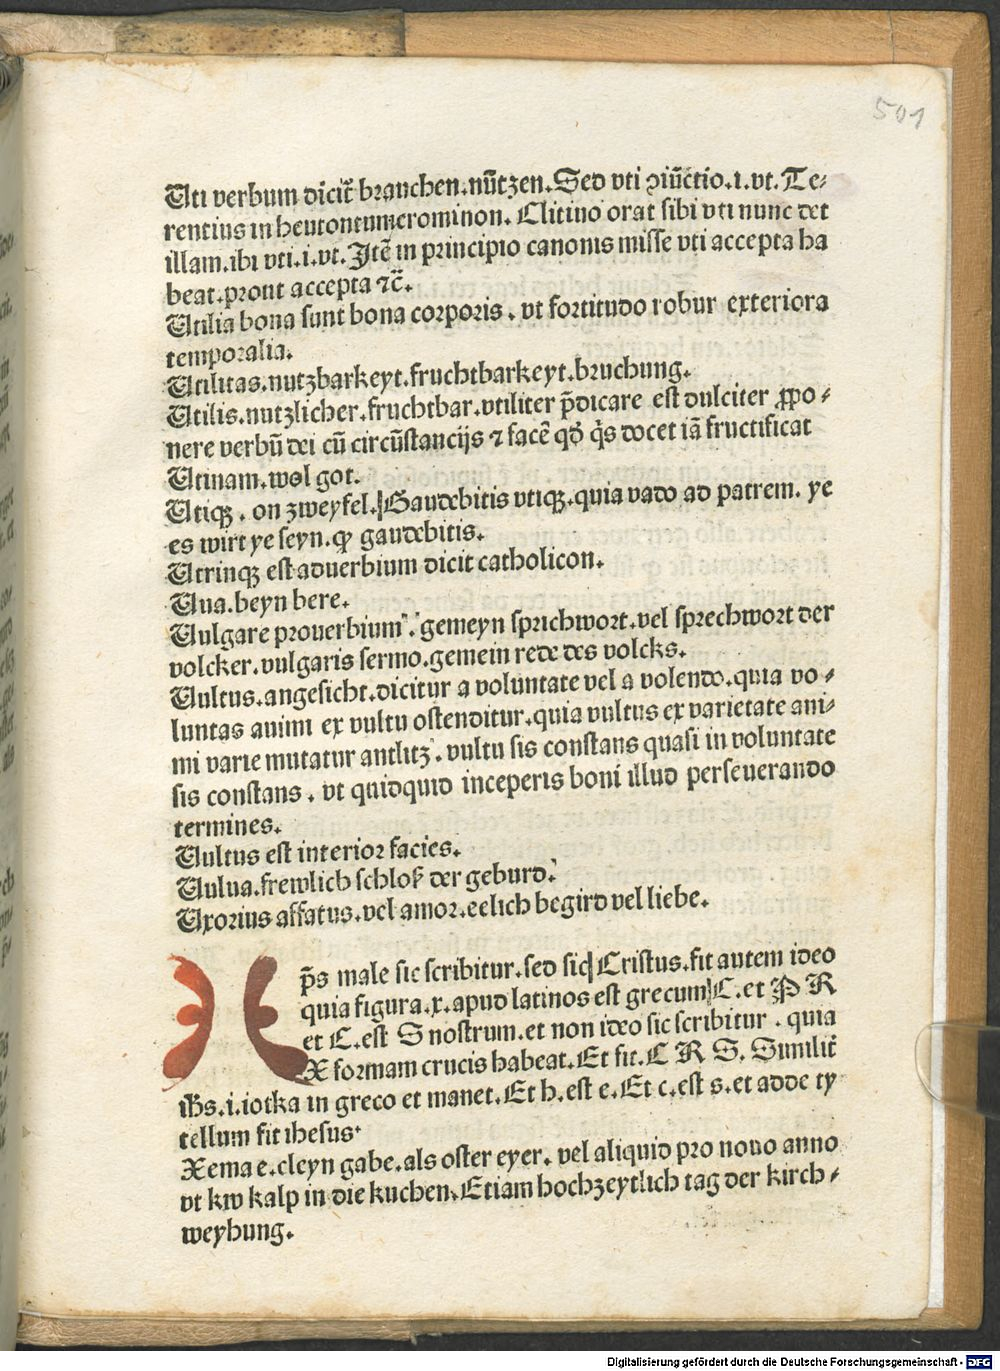 501
Uti verbum dicit̃ brauchen.nũtzen.Sed vti ꝯiũctio.i.vt.Te⸗
rentius in heutontumerominon. Clitino orat sibi vti nunc det
illam.ibi vti.i.vt.Itẽ in principio canonis misse vti accepta ha
beat.prout accepta ⁊c̃.
Utilia bona sunt bona corporis . vt fortitudo robur exteriora
temporalia.
Utilitas.nutzbarkeyt.fruchtbarkeyt.bruchung.
Utilis.nutzlicher.fruchtbar.vtiliter p̄dicare est dulciter ꝓpo⸗
nere verbũ dei cũ circũstancijs ⁊ facẽ qď q̇s docet iã fructificat
Utinam.wol got.
Utiqꝫ . on zweyfel.|Gaudebitis vtiqꝫ.quia vado ad patrem. ye
es wirt ye seyn.ꝙ gaudebitis.
Utrinqꝫ est aduerbium dicit catholicon.
Uua.beyn bere.
Uulgare prouerbium . gemeyn sprichwort.vel sprechwort der
volcker.vulgaris sermo.gemein rede des volcks.
Uultus.angesicht.dicitur a voluntate vel a volendo.quia vo⸗
luntas animi ex vultu ostenditur.quia vultus ex varietate ani⸗
mi varie mutatur antlitz . vultu sis constans quasi in voluntate
sis constans . vt quidquid inceperis boni illud perseuerando
termines.
Uultus est interior facies.
Uulua.frewlich schloß der geburd.
Uxorius affatus.vel amor.eelich begird vel liebe.
X p̄s male sic scribitur.sed sic| Cristus.fit autem ideo
quia figura.x.apud latinos est grecum|C.et P R
et C.est S nostrum.et non ideo sic scribitur . quia
X formam crucis habeat.Et fit.C R S. Similit̃
ih̄s.i.iotka in greco et manet.Et h.est e.Et c.est s.et adde ty
tellum fit ihesus.
Xema e.cleyn gabe.als oster eyer. vel aliquid pro nouo anno
vt kw kalp in die kuchen.Etiam hochzeytlich tag der kirch⸗
weyhung.
Digitalisierung gefördert durch die Deutsche Forschungsgemeinschaft - DFG